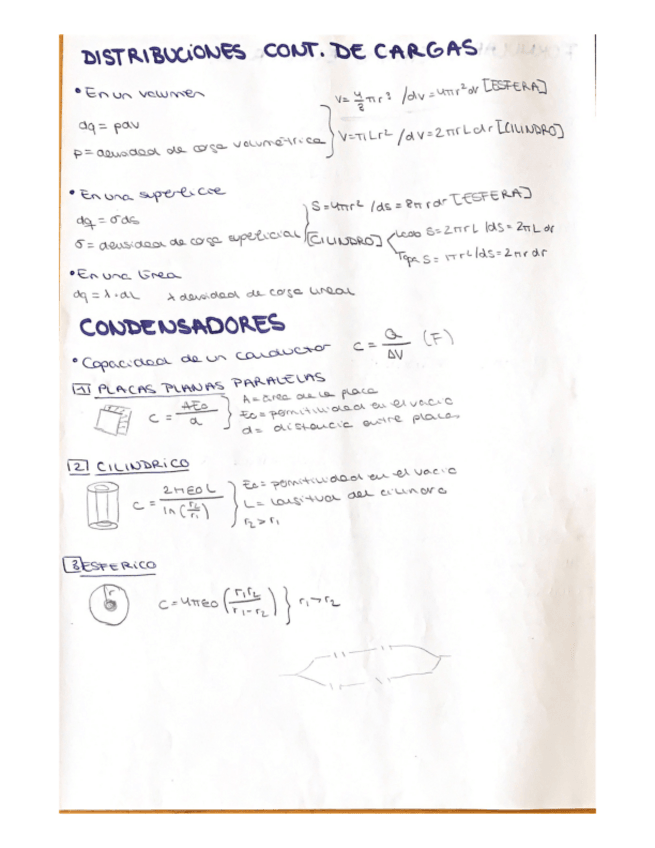 DISTRIBUCIONES CONT. DE CARGAS
• En un volumen
dq = ρdv
ρ = densidad de carga volumétrica
V = 4/3 πr³ / dv = 4πr²dr [ESFERA]
V = πLr² / dv = 2πrLdr [CILINDRO]
• En una superficie
dq = σds
σ = densidad de carga superficial
S = 4πr² / ds = 8πrdr [ESFERA]
[CILINDRO]
Lado S = 2πrL / ds = 2πLdr
Tapa S = πr² / ds = 2πrdr
• En una línea
dq = λ·dL λ densidad de carga lineal
CONDENSADORES
• Capacidad de un conductor C = Q/ΔV (F)
1 PLACAS PLANAS PARALELAS
C = Aε0/d
A = área de la placa
ε0 = permitividad en el vacío
d = distancia entre placas
2 CILINDRICO
C = 2πε0L / ln(r2/r1)
ε0 = permitividad en el vacío
L = longitud del cilindro
r2 > r1
3 ESFERICO
r
C = 4πε0 (r1r2 / r1-r2) } r1 > r2